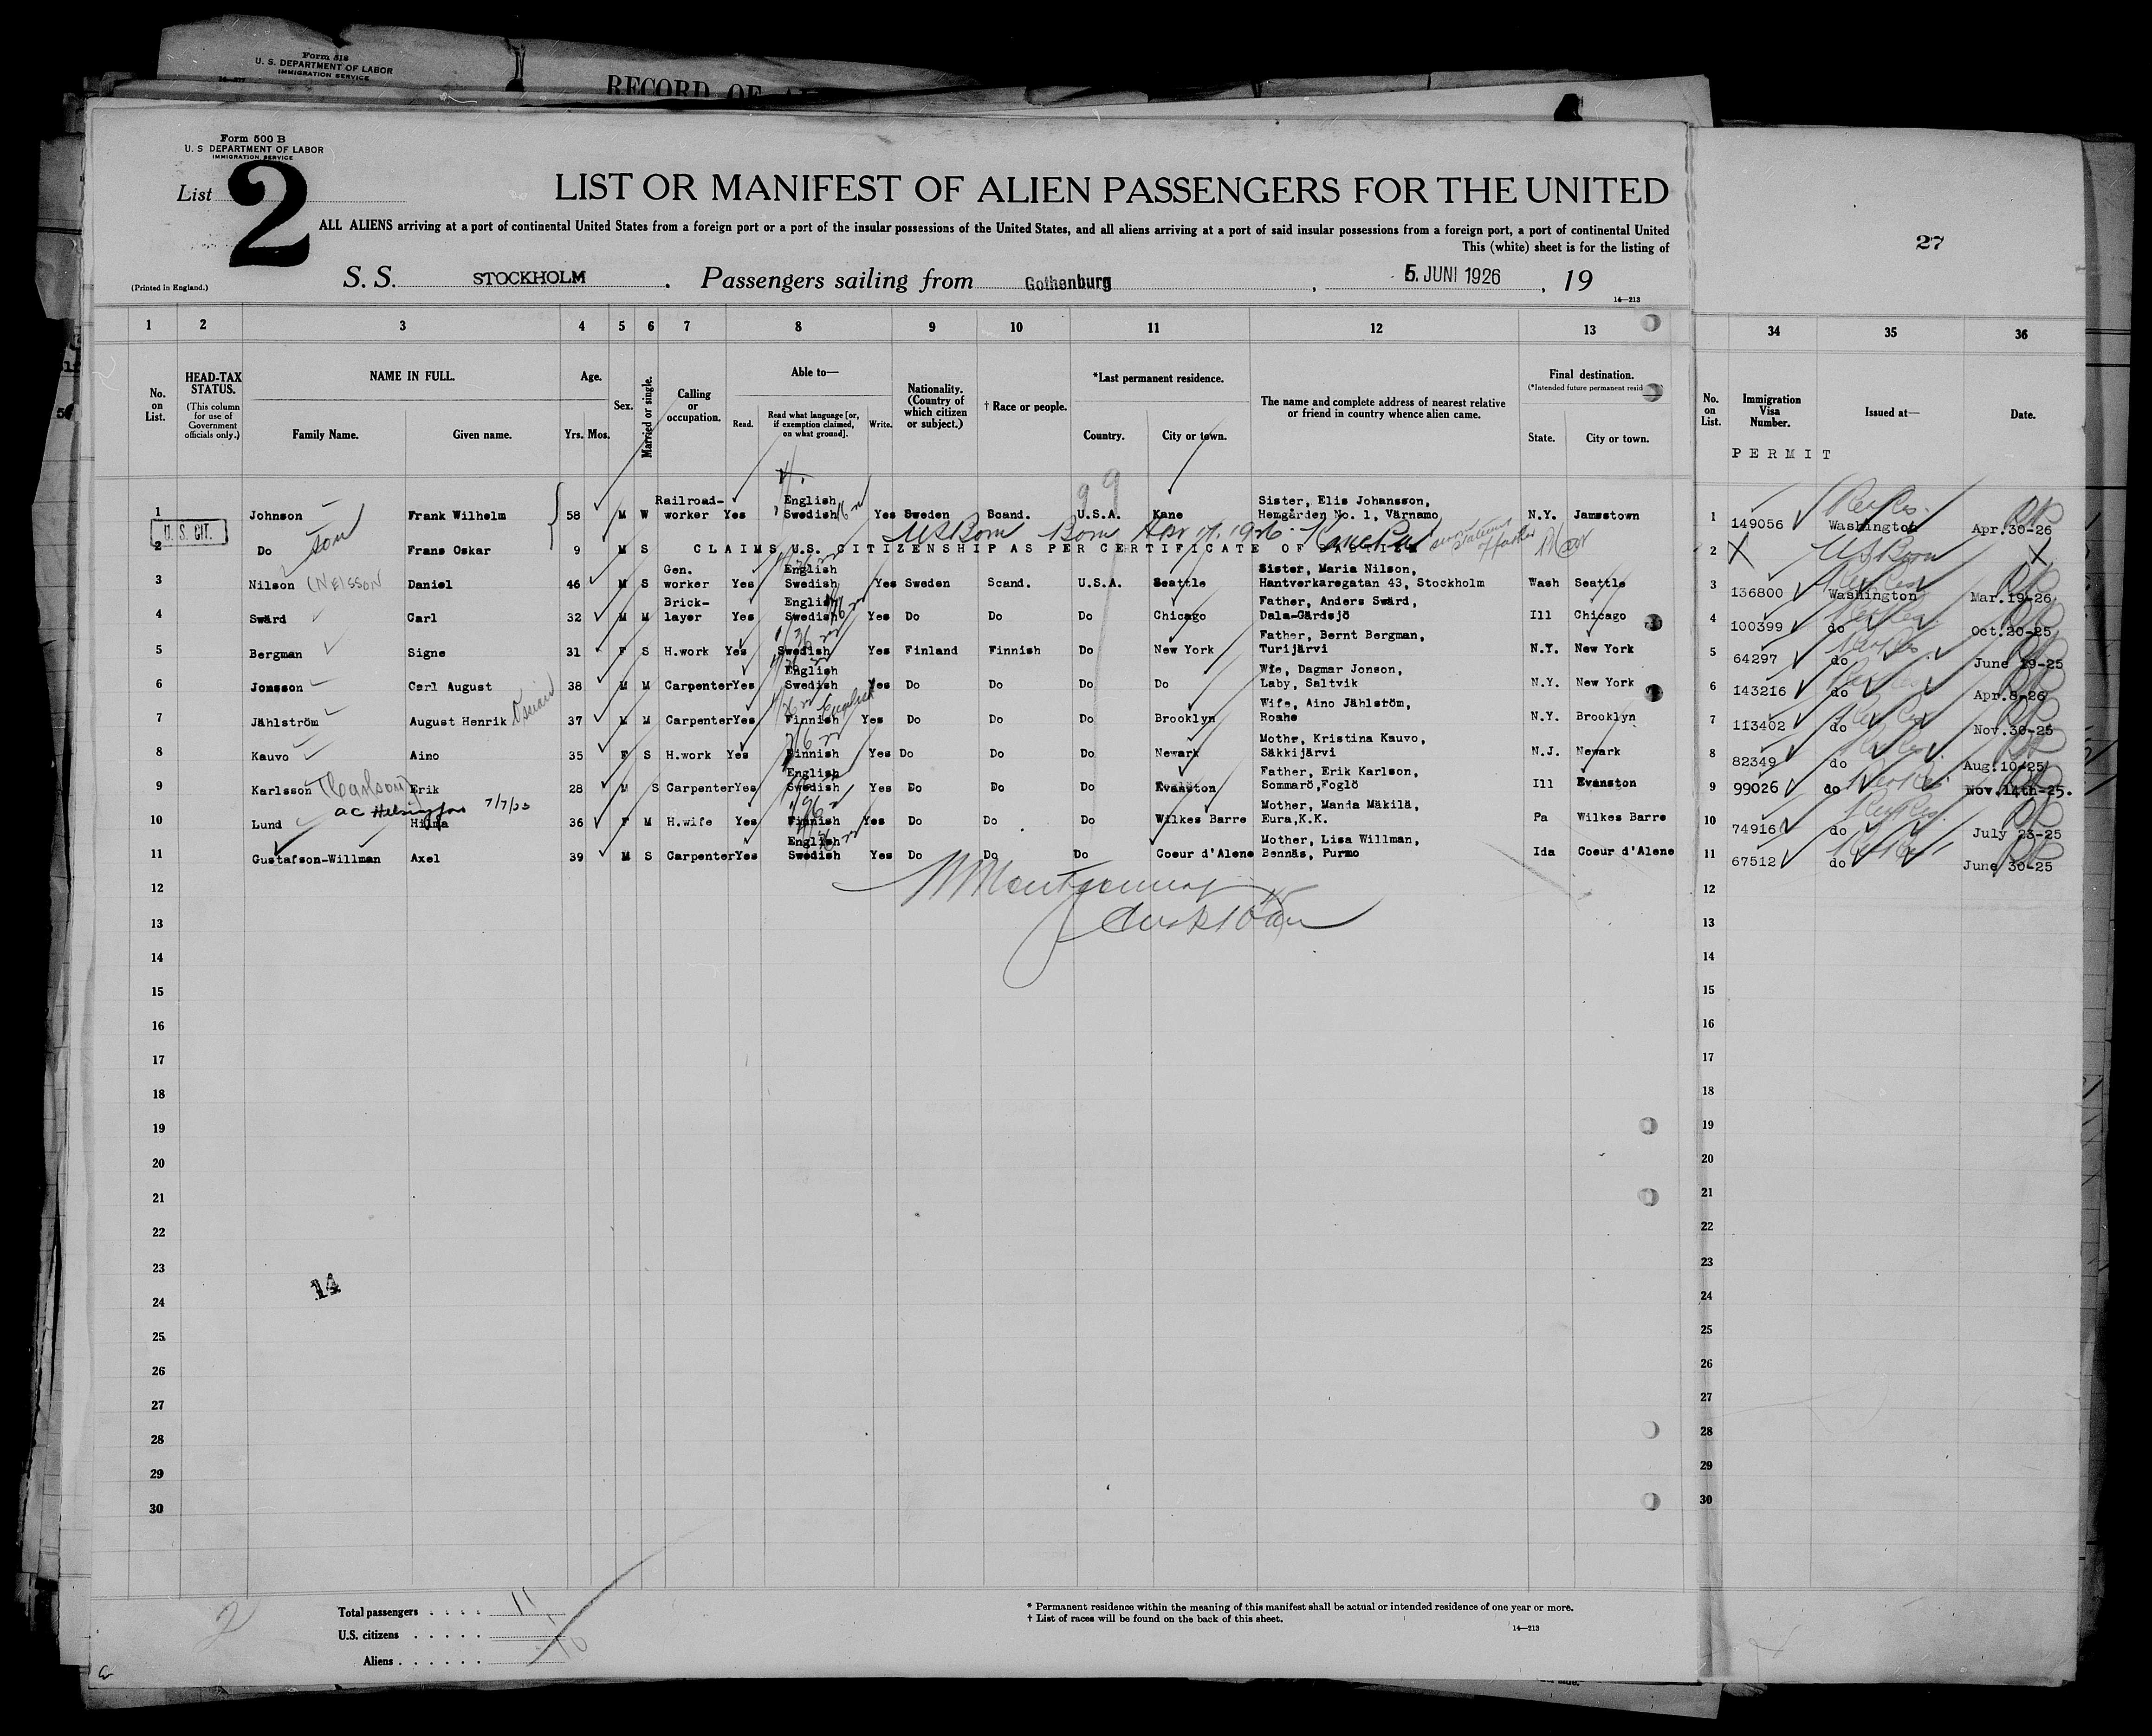 Form 518
U. S. DEPARTMENT OF LABOR
IMMIGRATION SERVICE
RECORD OF
Form 500 B
U. S DEPARTMENT OF LABOR
IMMIGRATION SERVICE
List 2
LIST OR MANIFEST OF ALIEN PASSENGERS FOR THE UNITED
ALL ALIENS arriving at a port of continental United States from a foreign port or a port of the insular possessions of the United States, and all aliens arriving at a port of said insular possessions from a foreign port, a port of continental United
This (white) sheet is for the listing of
27
(Printed in England.)
S. S. STOCKHOLM . Passengers sailing from Gothenburg , 5. JUNI 1926 , 19
14—213
1 2 3 4 5 6 7 8 9 10 11 12 13 34 35 36
No. on List.
HEAD-TAX STATUS.
(This column for use of Government officials only.)
NAME IN FULL.
Family Name. Given name.
Age.
Yrs. Mos.
Sex.
Married or single.
Calling or occupation.
Able to—
Read. Read what language [or, if exemption claimed, on what ground]. Write.
Nationality. (Country of which citizen or subject.)
† Race or people.
*Last permanent residence.
Country. City or town.
The name and complete address of nearest relative or friend in country whence alien came.
Final destination.
(*Intended future permanent resid
State. City or town.
No. on List.
Immigration Visa Number.
Issued at—
Date.
PERMIT
1 Johnson Frank Wilhelm 58 M W Railroad-worker Yes English Swedish Yes Sweden Scand. U.S.A. Kane Sister, Elis Johansson, Hemgården No. 1, Värnamo N.Y. Jamestown 1 149056 Washington Apr.30-26
U. S. CIT.
son
US Born Born Apr 17, 1926 Kane Pa
2 Do Frans Oskar 9 M S CLAIMS U.S. CITIZENSHIP AS PER CERTIFICATE OF 2 X US Born X
statement of father
3 Nilson (Neisson Daniel 46 M S Gen. worker Yes English Swedish Yes Sweden Scand. U.S.A. Seattle Sister, Maria Nilson, Hantverkaregatan 43, Stockholm Wash Seattle 3 136800 Washington Mar.19-26
4 Swärd Carl 32 M M Brick-layer Yes English Swedish Yes Do Do Do Chicago Father, Anders Swärd, Dala-Gärdsjö Ill Chicago 4 100399 do Oct.20-25
5 Bergman Signe 31 F S H.work Yes Swedish Yes Finland Finnish Do New York Father, Bernt Bergman, Turijärvi N.Y. New York 5 64297 do June 19-25
6 Jonsson Carl August 38 M M Carpenter Yes English Swedish Yes Do Do Do Do Wie, Dagmar Jonson, Laby, Saltvik N.Y. New York 6 143216 do Apr.8-26
7 Jählström August Henrik 37 M M Carpenter Yes Finnish English Yes Do Do Do Brooklyn Wife, Aino Jählstöm, Roahe N.Y. Brooklyn 7 113402 do Nov.30-25
8 Kauvo Aino 35 F S H.work Yes Finnish Yes Do Do Do Newark Mothr, Kristina Kauvo, Säkkijärvi N.J. Newark 8 82349 do Aug.10-25
9 Karlsson (Carlson) Erik 28 M S Carpenter Yes English Swedish Yes Do Do Do Evanston Father, Erik Karlson, Sommarö,Foglö Ill Evanston 9 99026 do Nov.14th-25.
ac Helsingfors 7/7/33
10 Lund Hilma 36 F M H.wife Yes Finnish Yes Do Do Do Wilkes Barre Mother, Manda Mäkilä, Eura,K.K. Pa Wilkes Barre 10 74916 do July 23-25
11 Gustafson-Willman Axel 39 M S Carpenter Yes English Swedish Yes Do Do Do Coeur d'Alene Mother, Lisa Willman, Bennäs, Purmo Ida Coeur d'Alene 11 67512 do June 30-25
12 12
13 13
14 14
15 15
16 16
17 17
18 18
19 19
20 20
21 21
22 22
23 23
14
24 24
25 25
26 26
27 27
28 28
29 29
30 30
2
Total passengers . . . . 11
U.S. citizens . . . . . 1
Aliens . . . . . . 10
* Permanent residence within the meaning of this manifest shall be actual or intended residence of one year or more.
† List of races will be found on the back of this sheet.
14—213